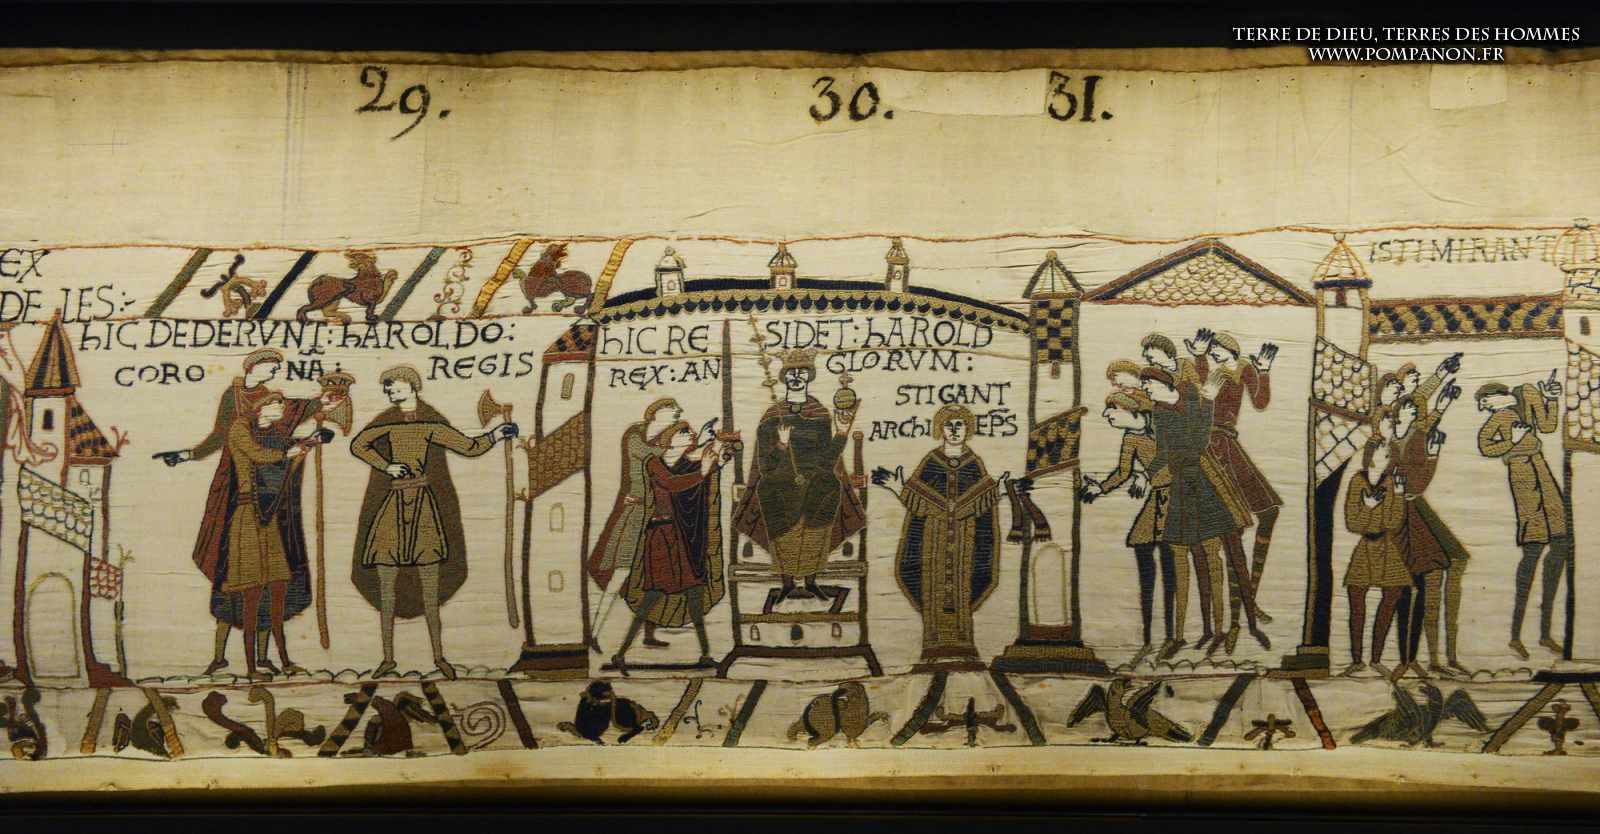 TERRE DE DIEU, TERRES DES HOMMES
WWW.POMPANON.FR
29. 30. 31.
EX
DE LES:-
hIC DEDERVNT: hAROLDO:
CORO NĀ: REGIS
hIC RE SIDET: hAROLD
REX: AN GLORVM:
STIGANT
ARChI EP̄S
ISTI MIRANT